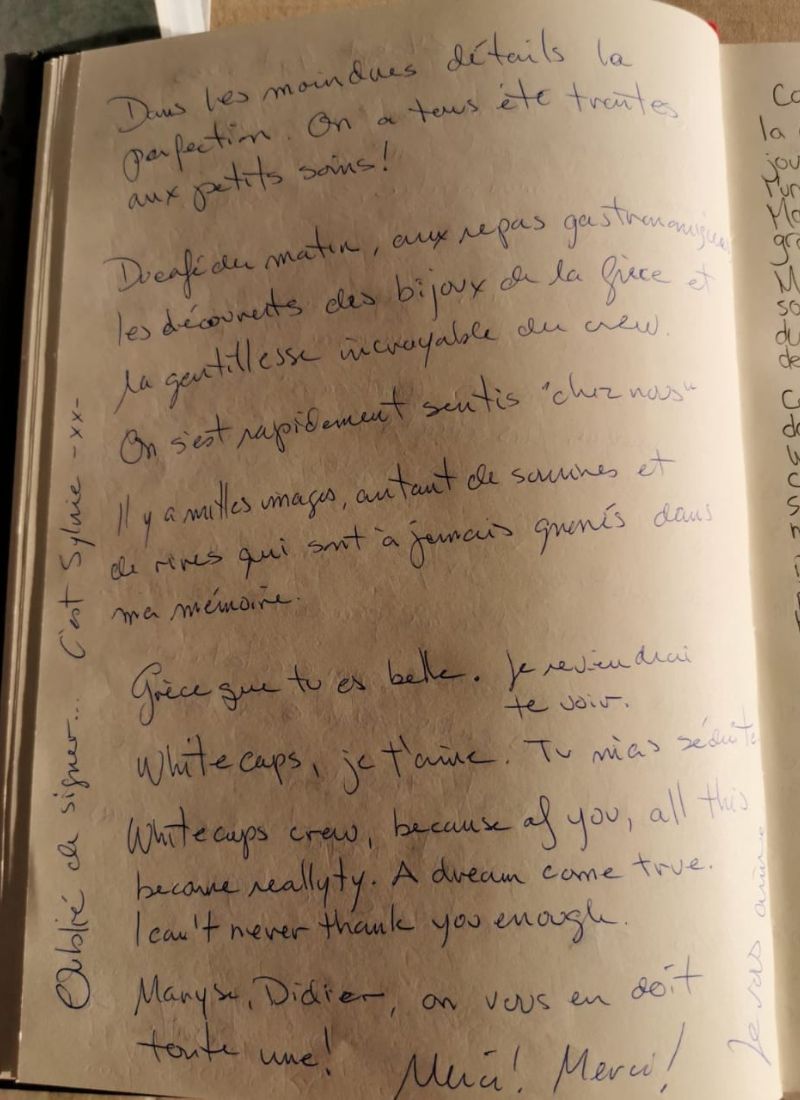 Dans les moindres détails la
perfection. On a tous été traités
aux petits soins!
Du café du matin, aux repas gastronomiques,
les découverts des bijoux de la Grèce et
la gentillesse incroyable du crew.
On s'est rapidement sentis "chez nous"
Il y a milles images, autant de sourires et
de rires qui sont à jamais gravés dans
ma mémoire.
Grèce que tu es belle. Je reviendrai
te voir.
Whitecaps, je t'aime. Tu m'as séduite
Whitecaps crew, because of you, all this
became reallyty. A dream come true.
I can't never thank you enough.
Maryse, Didier, on vous en doit
toute une!
Merci! Merci!
Je vous aime
Oublié de signer... C'est Sylvie -xx-
la